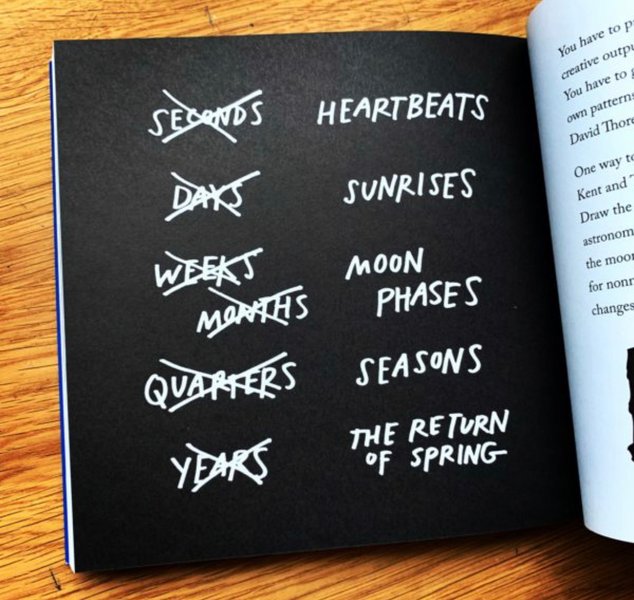 SECONDS HEARTBEATS
DAYS SUNRISES
WEEKS MOON
MONTHS PHASES
QUARTERS SEASONS
YEARS THE RETURN
OF SPRING
You have to p
creative outpu
You have to g
own pattern
David Thore
One way to
Kent and T
Draw the
astronom
the moon
for nonn
changes